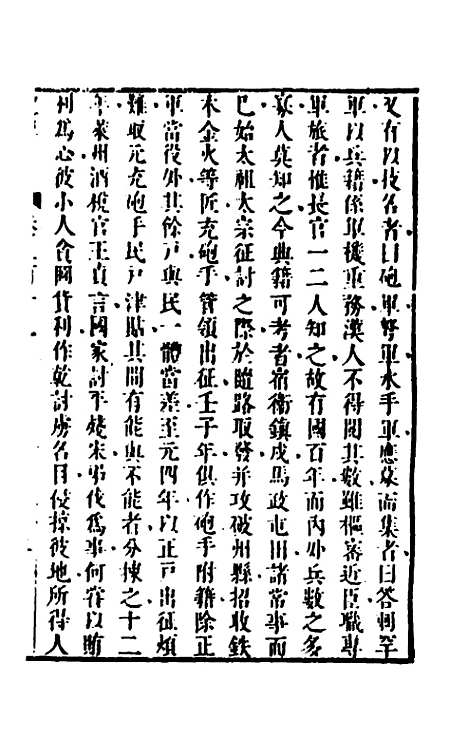 又有以技名者曰砲軍弩軍水手軍應募而集者曰答剌罕
軍以兵籍係軍機重務漢人不得閱其數雖樞密近臣職專
軍旅者惟長官一二人知之故有國百年而內外兵數之多
寡人莫知之今典籍可考者宿衞鎮戍馬政屯田諸常事而
已始太祖太宗征討之際於隨路取發并攻破州縣招收鐵
木金火等匠充砲手管領出征壬子年俱作砲手附籍除正
軍當役外其餘戶與民一體當差至元四年以正戶出征煩
難取元充砲手民戶津貼其間有能與不能者分揀之十二
年萊州酒稅官王貞言國家討平殘宋弔伐爲事何嘗以賄
利爲心彼小人貪圖貨利作乾討虜名目侵掠彼地所得人